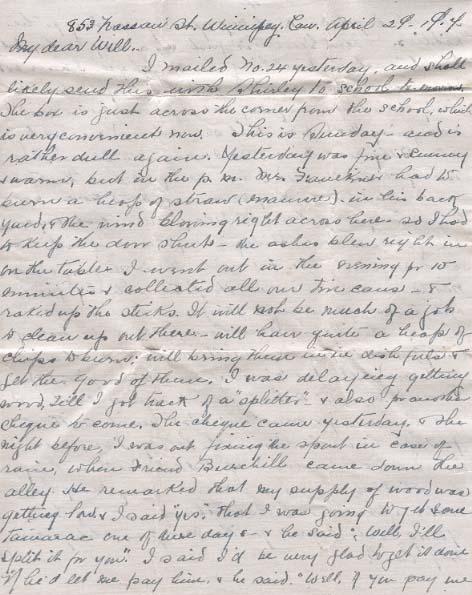 853 Nassau St. Winnipeg, Can. April 29 - 1917.
My dear Will..
I mailed No. 24 yesterday - and shall
likely send this with Shirley to school to-morrow.
The box is just across the corner from the school, which
is very convenient now. This is Sunday - and is
rather dull again. Yesterday was fine & sunny
& warm, but in the p.m. Mr. had to
burn a heap of straw (manure) - in his back
yard, & the wind blowing right across here so I had
to keep the door shut - the ashes blew right in
on the table. I went out in the evening for 10
minutes & collected all our tin cans - &
raked up the sticks. It will not be much of a job
to clean up out there - will have quite a heap of
chips to burn: will bring them in in dish fuls &
get the good of them. I was delaying getting
wood, till I got track of a "splitter" & also for another
cheque to come. The cheque came yesterday. & the
night before, I was out fixing the spout in case of
rain, when Friend Burchill came down the
alley. He remarked that my supply of wood was
getting low & I said "yes," that I was going to get some
Tamarac one of these days - & he said "Well, I'll
split it for you". I said I'd be very glad to get it done
if he'd let me pay him. & he said. "Well, if you pay me